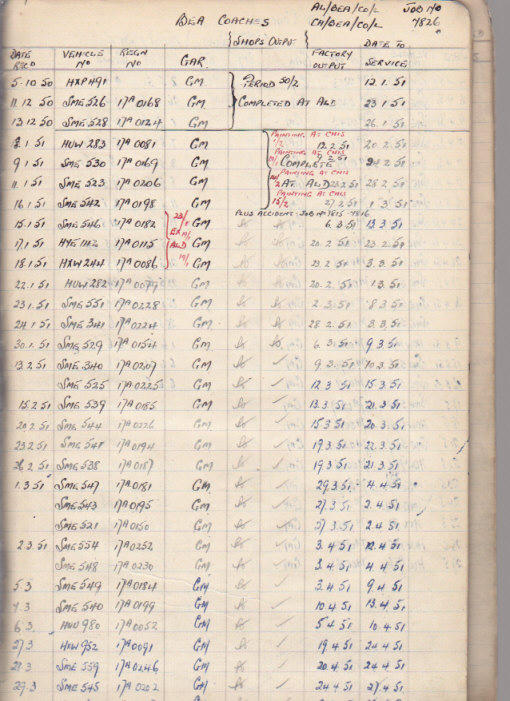 BEA COACHES AL/BEA/CO/L JOB NO
CA/BEA/CO/L 7826
SHOPS OUTPUT DATE TO
DATE VEHICLE REGN GAR. FACTORY SERVICE
REC'D NO NO OUTPUT
5.10.50 HXP491 GM PERIOD 50/2 12.1.51
11.12.50 SME 526 17A 0168 GM COMPLETED AT ALD 23.1.51
13.12.50 SME 528 17A 0124 GM 26.1.51
PAINTING AT CHIS
.1.51 HUW 283 17A 0081 GM 1/2 12.2.51 20.2.51
PAINTING AT CHIS
9.1.51 SME 530 17A 0169 GM COMPLETE 9.2.51 .2.51
PAINTING AT CHIS
11.1.51 SME 523 17A 0206 GM AT ALD 23.2.51 28.2.51
PAINTING AT CHIS
16.1.51 SME 542 17A 0198 GM 15/2 27.2.51 1.3.51
PLUS ACCIDENT. JOB Nº 7815 - 7816
15.1.51 SME 546 17A 0182 23/1 GM 6.3.51 13.3.51
17.1.51 17A 0115 EX GM 20.2.51 23.2.51
18.1.51 HXW 244 17A 0086 ALD GM 23.2.51 3.3.51
22.1.51 HUW 282 17A 0079 GM 20.2.51 1.3.51
23.1.51 SME 551 17A 0228 GM 2.3.51 8.3.51
24.1.51 SME 341 17A 0224 GM 28.2.51 3.3.51
30.1.51 SME 529 17A 0154 GM 6.3.51 9.3.51
13.2.51 SME 340 17A 0207 GM ✓ 9.3.51 10.3.51
SME 525 17A 0225 GM ✓ 12.3.51 15.3.51
15.2.51 SME 539 17A 0185 GM ✓ 13.3.51 21.3.51
20.2.51 SME 544 17A 0226 GM ✓ 15.3.51 20.3.51
23.2.51 SME 541 17A 0194 GM ✓ 19.3.51 22.3.51
26.2.51 SME 538 17A 0187 GM ✓ 19.3.51 21.3.51
1.3.51 SME 547 17A 0181 GM ✓ 29.3.51 4.4.51
SME 543 17A 0195 GM ✓ 27.3.51 2.4.51
SME 521 17A 0150 GM ✓ 27.3.51 2.4.51
2.3.51 SME 554 17A 0252 GM ✓ 3.4.51 12.4.51
SME 548 17A 0230 GM ✓ 3.4.51 4.4.51
5.3 SME 549 17A 0184 GM ✓ 3.4.51 9.4.51
7.3 SME 540 17A 0199 GM ✓ 10.4.51 13.4.51
6.3 HUU 980 17A 0052 GM ✓ 5.4.51 10.4.51
27.3 HXW 952 17A 0091 GM ✓ 19.4.51 24.4.51
28.3 SME 559 17A 0246 GM ✓ 20.4.51 24.4.51
29.3 SME 545 17A 0202 GM ✓ 24.4.51 27.4.51